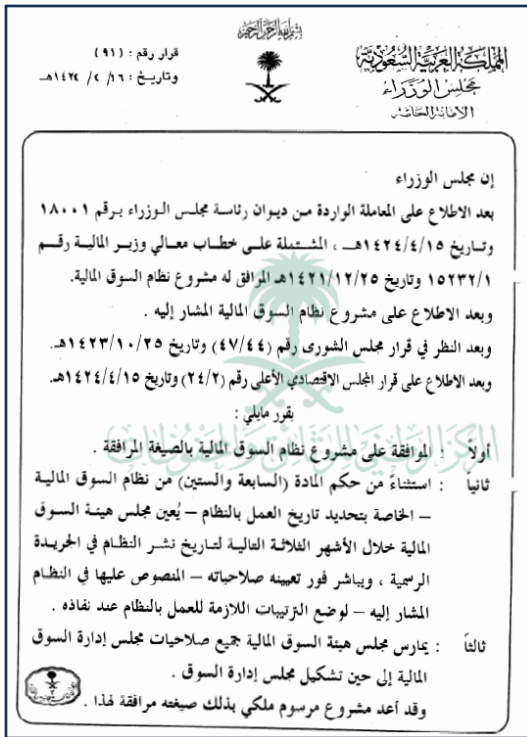 بسم الله الرحمن الرحيم
المملكة العربية السعودية
مجلس الوزراء
الأمانة العامة
قرار رقم : (٩١)
وتاريخ : ١٦/ ٢/ ١٤٢٤هـ
إن مجلس الوزراء
بعد الاطلاع على المعاملة الواردة من ديوان رئاسة مجلس الوزراء برقم ١٨٠٠١
وتاريخ ١٤٢٤/٤/١٥هـ ، المشتملة على خطاب معالي وزير المالية رقم
١٥٢٣٢/١ وتاريخ ١٤٢١/١٢/٢٥هـ المرافق له مشروع نظام السوق المالية.
وبعد الاطلاع على مشروع نظام السوق المالية المشار إليه .
وبعد النظر في قرار مجلس الشورى رقم (٤٧/٤٤) وتاريخ ١٤٢٣/١٠/٢٥هـ.
وبعد الاطلاع على قرار المجلس الاقتصادي الأعلى رقم (٢٤/٢) وتاريخ ١٤٢٤/٤/١٥هـ.
يقرر مايلي :
أولاً : الموافقة على مشروع نظام السوق المالية بالصيغة المرافقة .
ثانياً : استثناءً من حكم المادة (السابعة والستين) من نظام السوق المالية
– الخاصة بتحديد تاريخ العمل بالنظام – يُعين مجلس هيئة السوق
المالية خلال الأشهر الثلاثة التالية لتاريخ نشر النظام في الجريدة
الرسمية ، ويباشر فور تعيينه صلاحياته – المنصوص عليها في النظام
المشار إليه – لوضع الترتيبات اللازمة للعمل بالنظام عند نفاذه .
ثالثاً : يمارس مجلس هيئة السوق المالية جميع صلاحيات مجلس إدارة السوق
المالية إلى حين تشكيل مجلس إدارة السوق .
وقد أعد مشروع مرسوم ملكي بذلك صيغته مرافقة لهذا .
المركز الوطني للوثائق والمحفوظات